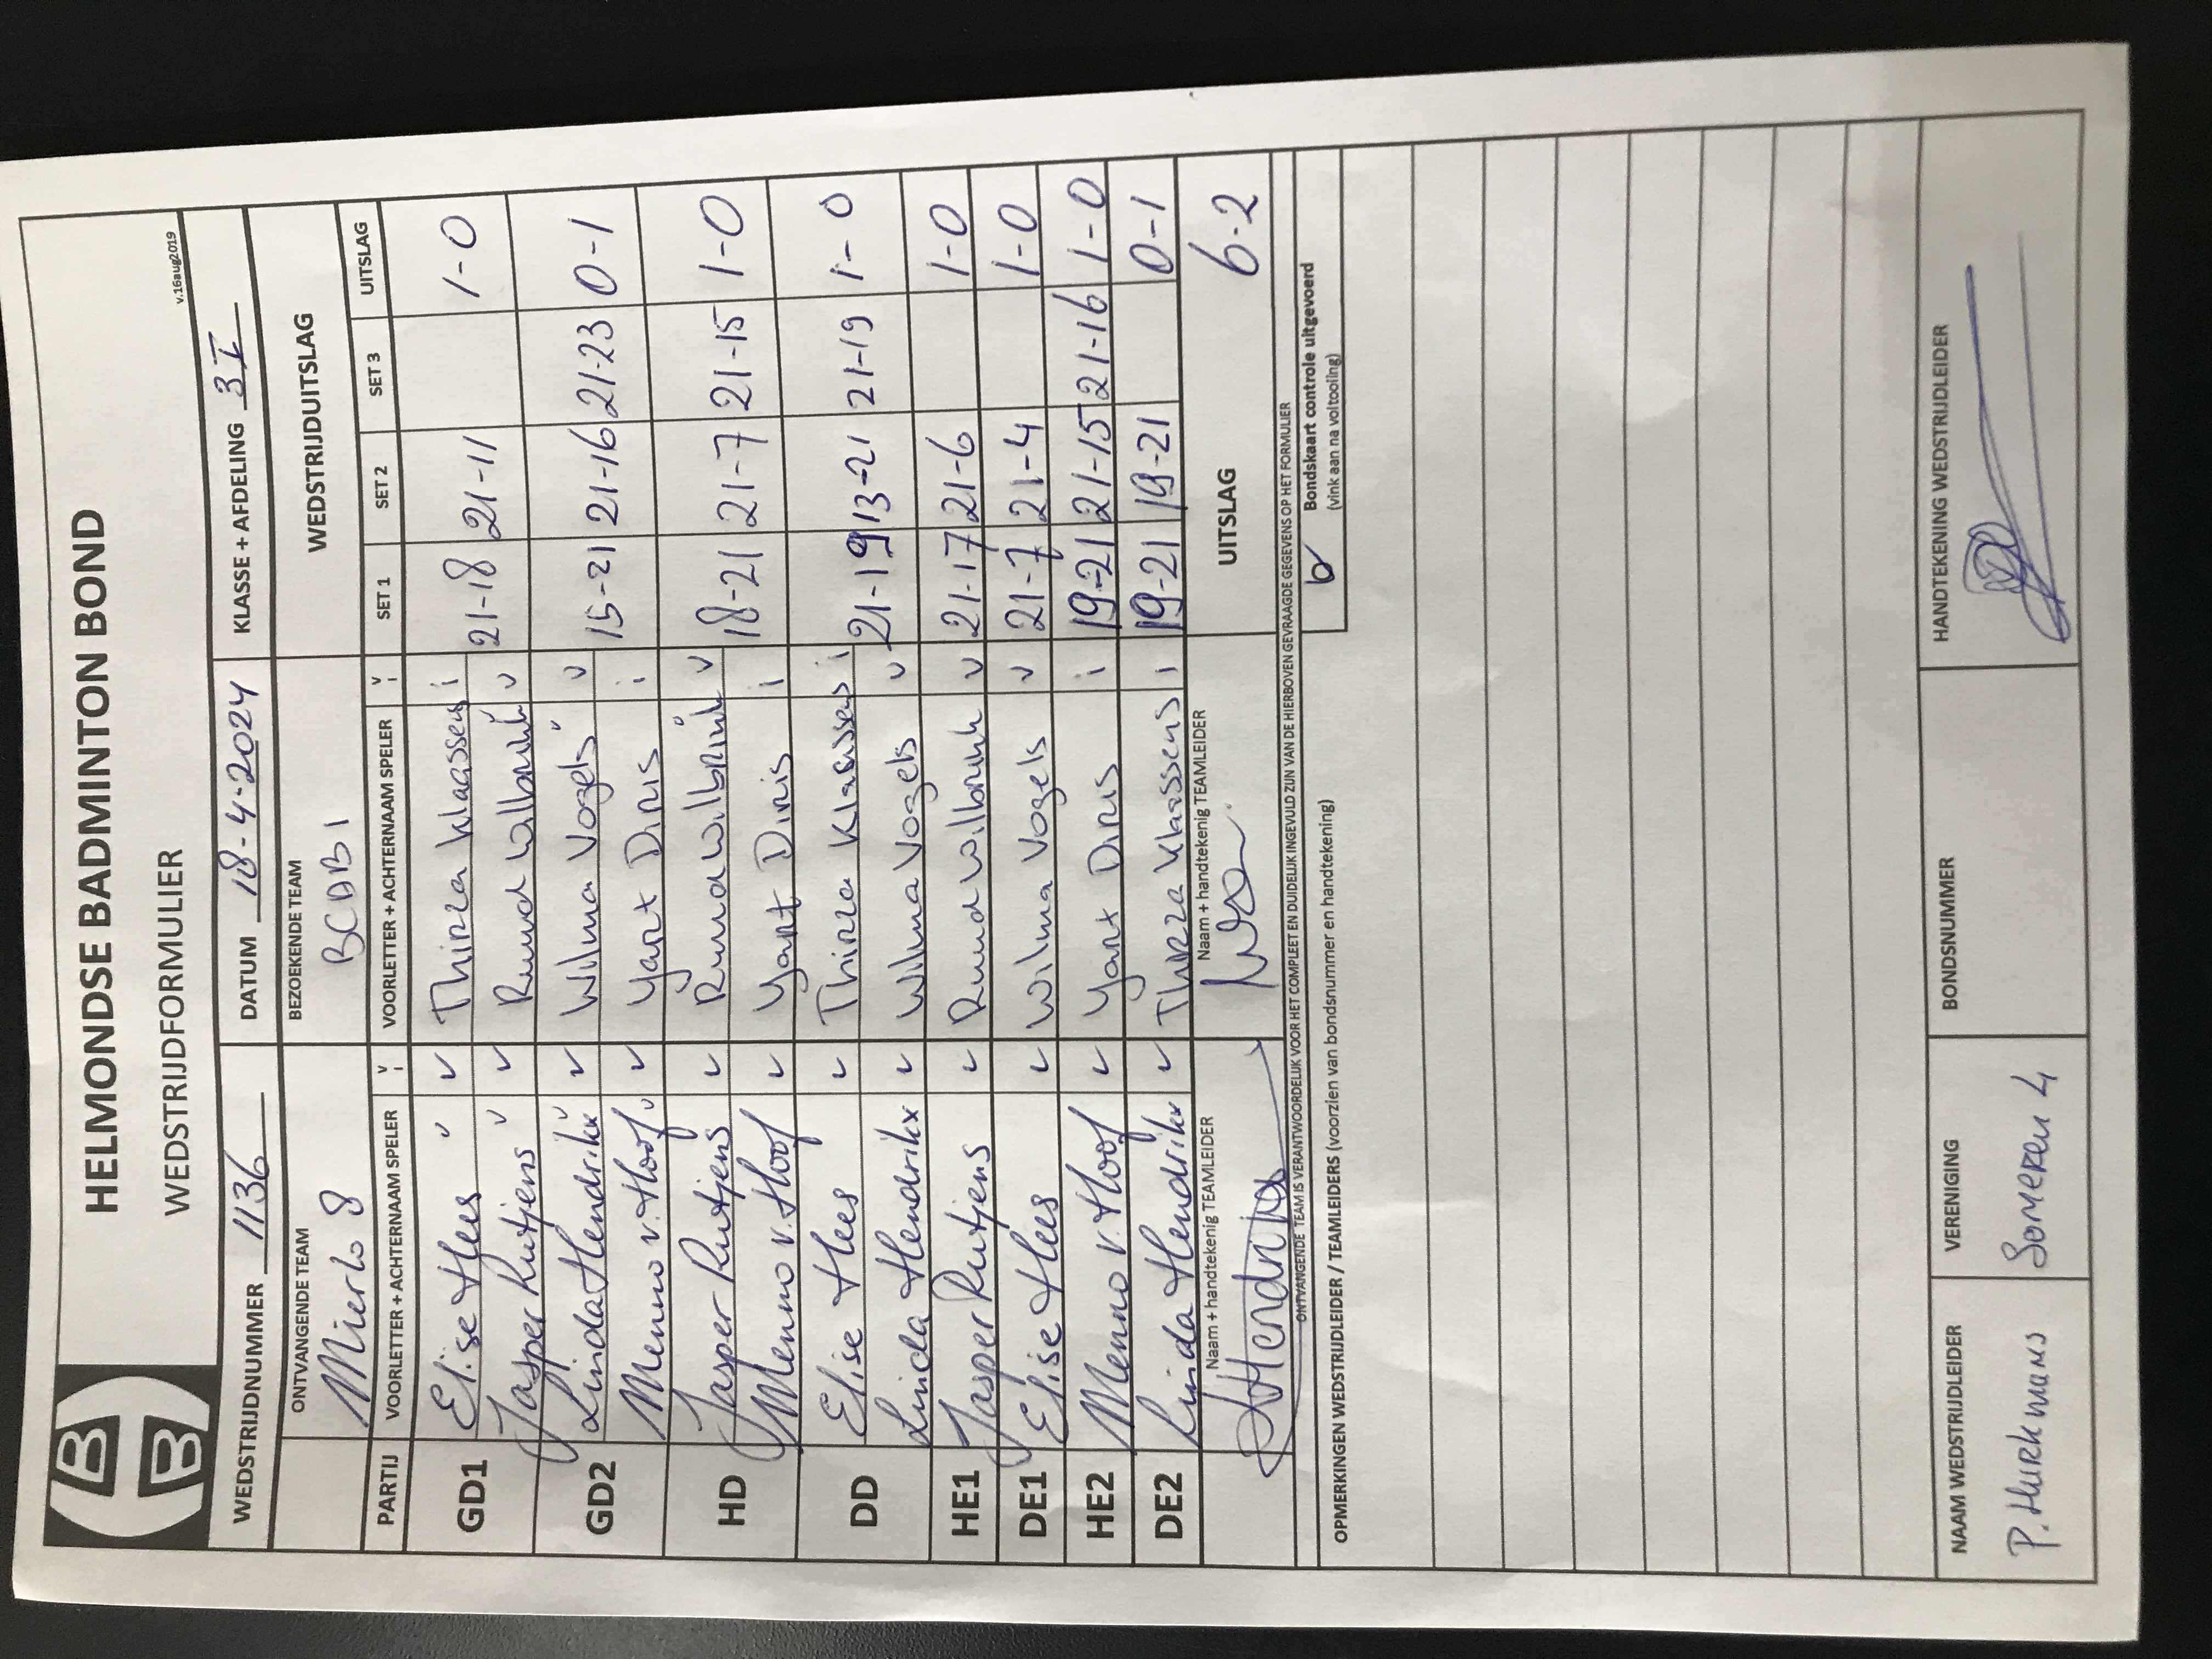 HELMONDSE BADMINTON BOND
WEDSTRIJDFORMULIER
v.16aug2019
WEDSTRIJDNUMMER 1136 DATUM 18-4-2024 KLASSE + AFDELING 3I
ONTVANGENDE TEAM BEZOEKENDE TEAM WEDSTRIJDUITSLAG
Mierlo 8 BCAB 1
PARTIJ VOORLETTER + ACHTERNAAM SPELER V I VOORLETTER + ACHTERNAAM SPELER V I SET 1 SET 2 SET 3 UITSLAG
GD1 Elise Hees v v Thirza Klaassens i 21-18 21-11 1-0
Jasper Rutjens v v Ruud Wilbrink v
GD2 Linda Hendrikx v v Wilma Vogels v 15-21 21-16 21-23 0-1
Menno v. Hoof v v Yant Diris i
HD Jasper Rutjens v Ruud Wilbrink v 18-21 21-7 21-15 1-0
Menno v. Hoof v Yant Diris i
DD Elise Hees v Thirza Klaassens i 21-19 13-21 21-19 1-0
Linda Hendrikx v Wilma Vogels v
HE1 Jasper Rutjens v Ruud Wilbrink v 21-17 21-6 1-0
DE1 Elise Hees v Wilma Vogels v 21-7 21-4 1-0
HE2 Menno v. Hoof v Yant Diris i 19-21 21-15 21-16 1-0
DE2 Linda Hendrikx v Thirza Klaassens i 19-21 19-21 0-1
Naam + handtekenig TEAMLEIDER Naam + handtekenig TEAMLEIDER UITSLAG 6-2
LHendrikx
ONTVANGENDE TEAM IS VERANTWOORDELIJK VOOR HET COMPLEET EN DUIDELIJK INGEVULD ZIJN VAN DE HIERBOVEN GEVRAAGDE GEGEVENS OP HET FORMULIER
OPMERKINGEN WEDSTRIJDLEIDER / TEAMLEIDERS (voorzien van bondsnummer en handtekening)
Bondskaart controle uitgevoerd
(vink aan na voltooiing)
NAAM WEDSTRIJDLEIDER VERENIGING BONDSNUMMER HANDTEKENING WEDSTRIJDLEIDER
P. Hurkmans Someren 4